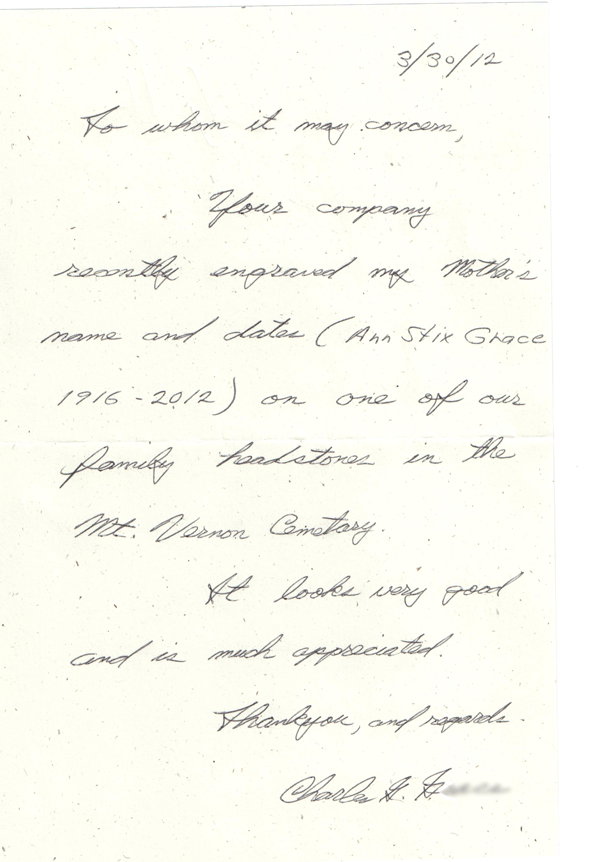 3/30/12
To whom it may concern,
Your company
recently engraved my Mother's
name and dates (Ann Stix Grace
1916-2012) on one of our
family headstones in the
Mt. Vernon Cemetary.
It looks very good
and is much appreciated.
Thankyou, and regards.
Charles H. H